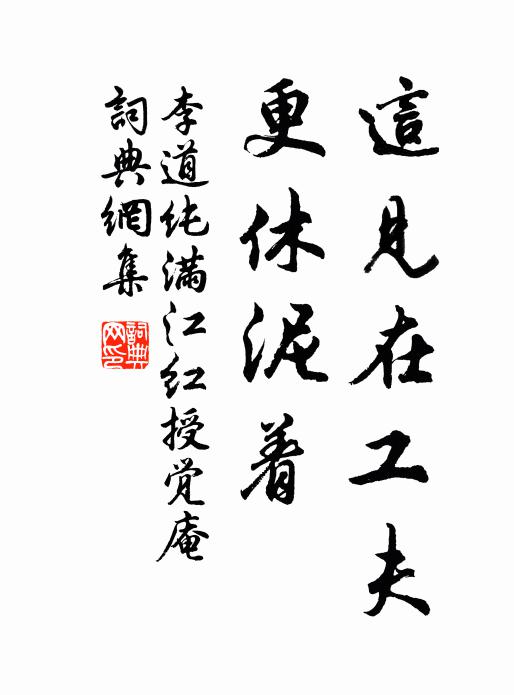 這見在工夫
更休泥着
李道纯满江红授觉庵
詞典網集
詞典網印